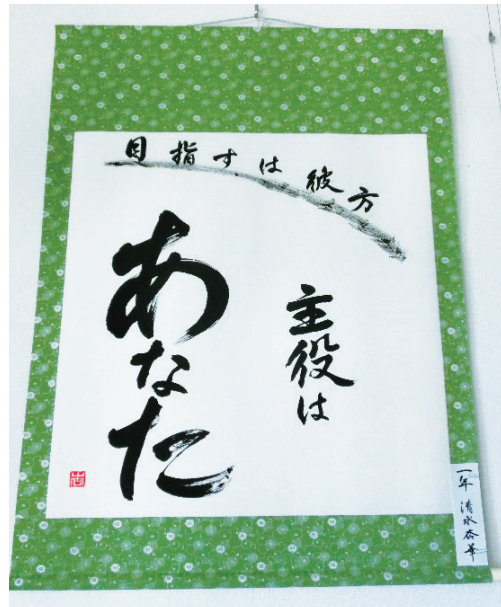 目指すは彼方
主役は
あなた
一年 清水杏華